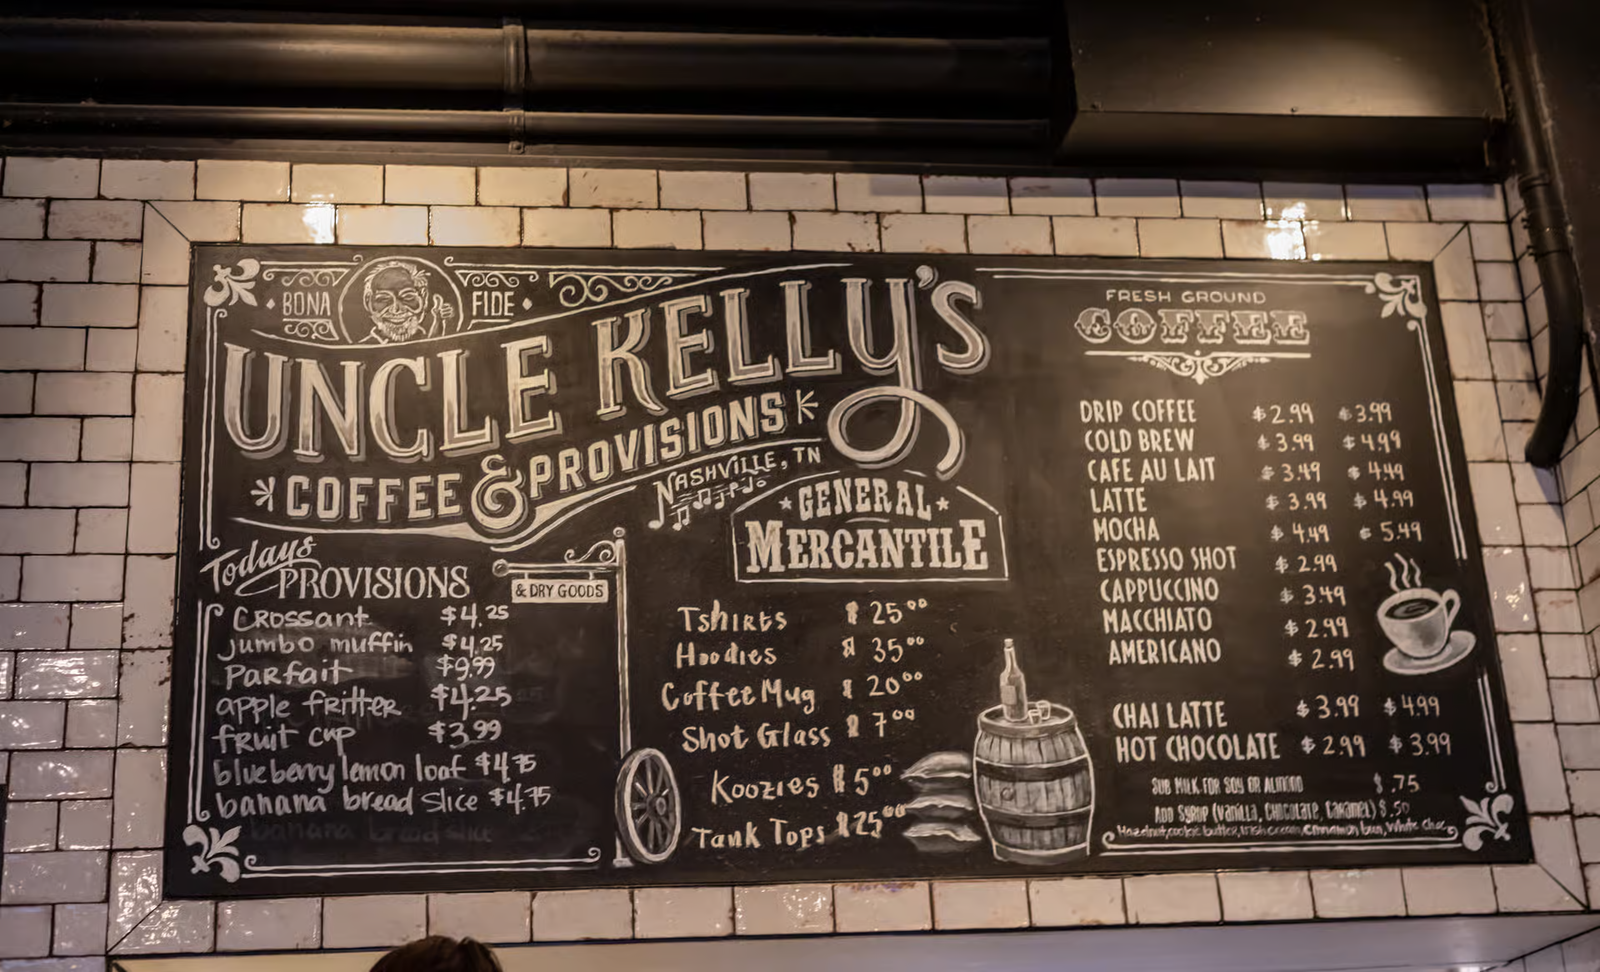 BONA FIDE
UNCLE KELLY'S
COFFEE & PROVISIONS
NASHVILLE, TN
Today's
PROVISIONS
& DRY GOODS
Crossant $4.25
jumbo muffin $4.25
Parfait $9.99
apple fritter $4.25
fruit cup $3.99
blueberry lemon loaf $4.75
banana bread slice $4.75
banana bread slice
GENERAL
MERCANTILE
Tshirts $25.00
Hoodies $35.00
Coffee Mug $20.00
Shot Glass $7.00
Koozies $5.00
Tank Tops $25.00
FRESH GROUND
COFFEE
DRIP COFFEE $2.99 $3.99
COLD BREW $3.99 $4.99
CAFE AU LAIT $3.49 $4.49
LATTE $3.99 $4.99
MOCHA $4.49 $5.49
ESPRESSO SHOT $2.99
CAPPUCCINO $3.49
MACCHIATO $2.99
AMERICANO $2.99
CHAI LATTE $3.99 $4.99
HOT CHOCOLATE $2.99 $3.99
SUB MILK FOR SOY OR ALMOND $.75
ADD SYRUP (Vanilla, CHOCOLATE, CARAMEL) $.50
Hazelnut, cookie butter, Irish cream, Cinnamon bun, White choc